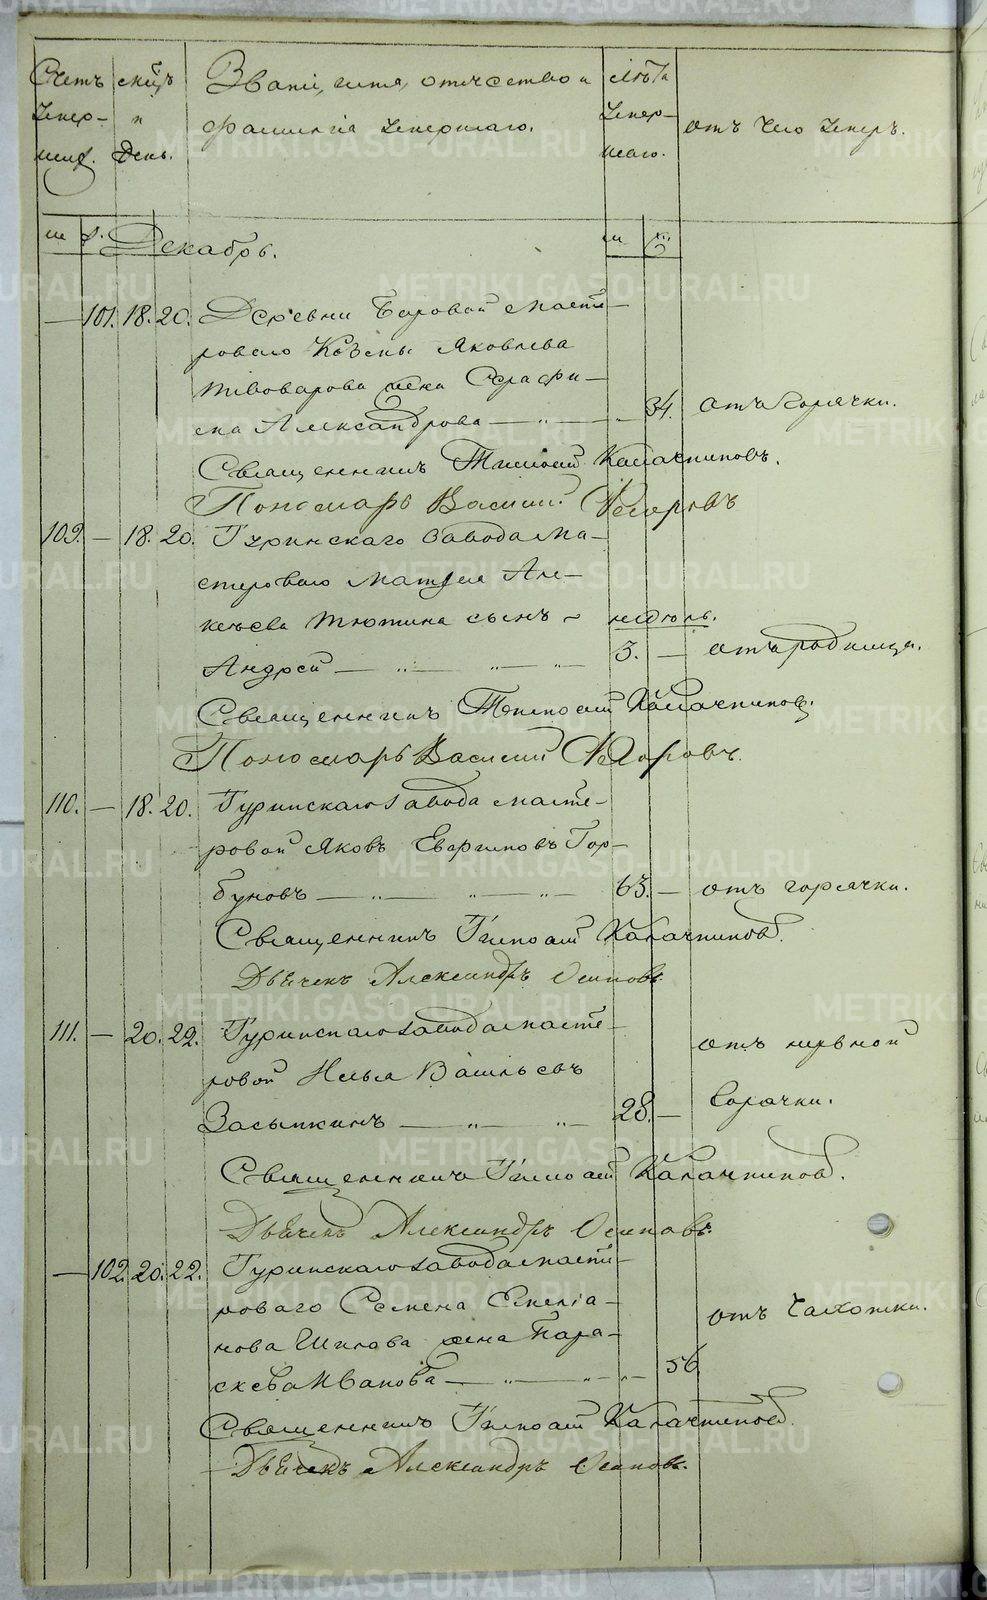 Счетъ умер- шихъ.
мѣсяцъ и день.
Званіе, имя, отчество и
фамилія умершаго.
Лѣта умер- шаго.
отъ чего умеръ.
м. ж. Декабрь. м. ж.
— 101. 18. 20. Деревни Боровой масте-
роваго Кузьмы Яковлева
Пивоварова жена Серафи-
ма Александрова — „ — 34. отъ горячки.
Священникъ Тимофей Калачниковъ.
Пономарь Василий Федоровъ
109. — 18. 20. Туринскаго завода ма-
стероваго Матвея Але-
кѣева Тютина сынъ — недѣль.
Андрей — „ — „ — „ — 3. — отъ родимца.
Священникъ Тимофей Калачниковъ.
Пономарь Василий Федоровъ.
110. — 18. 20. Туринскаго завода масте-
ровой Яковъ Евграфовъ Гор-
буновъ — „ — „ — „ — 63. — отъ горячки.
Священникъ Тимофей Калачниковъ.
Дьячекъ Александръ Осиповъ
111. — 20. 22. Туринскаго завода масте-
ровой Илья Васильевъ
Засыпкинъ — „ — „ — 28. — отъ нервной
горячки.
Священникъ Тимофей Калачниковъ.
Дьячекъ Александръ Осиповъ.
— 102. 20. 22. Туринскаго завода масте-
роваго Семена Емелья-
нова Шилова жена Пара-
скева Иванова — „ — „ — 56. отъ чахотки.
Священникъ Тимофей Калачниковъ.
Дьячекъ Александръ Осиповъ.
METRIKI.GASO-URAL.RU